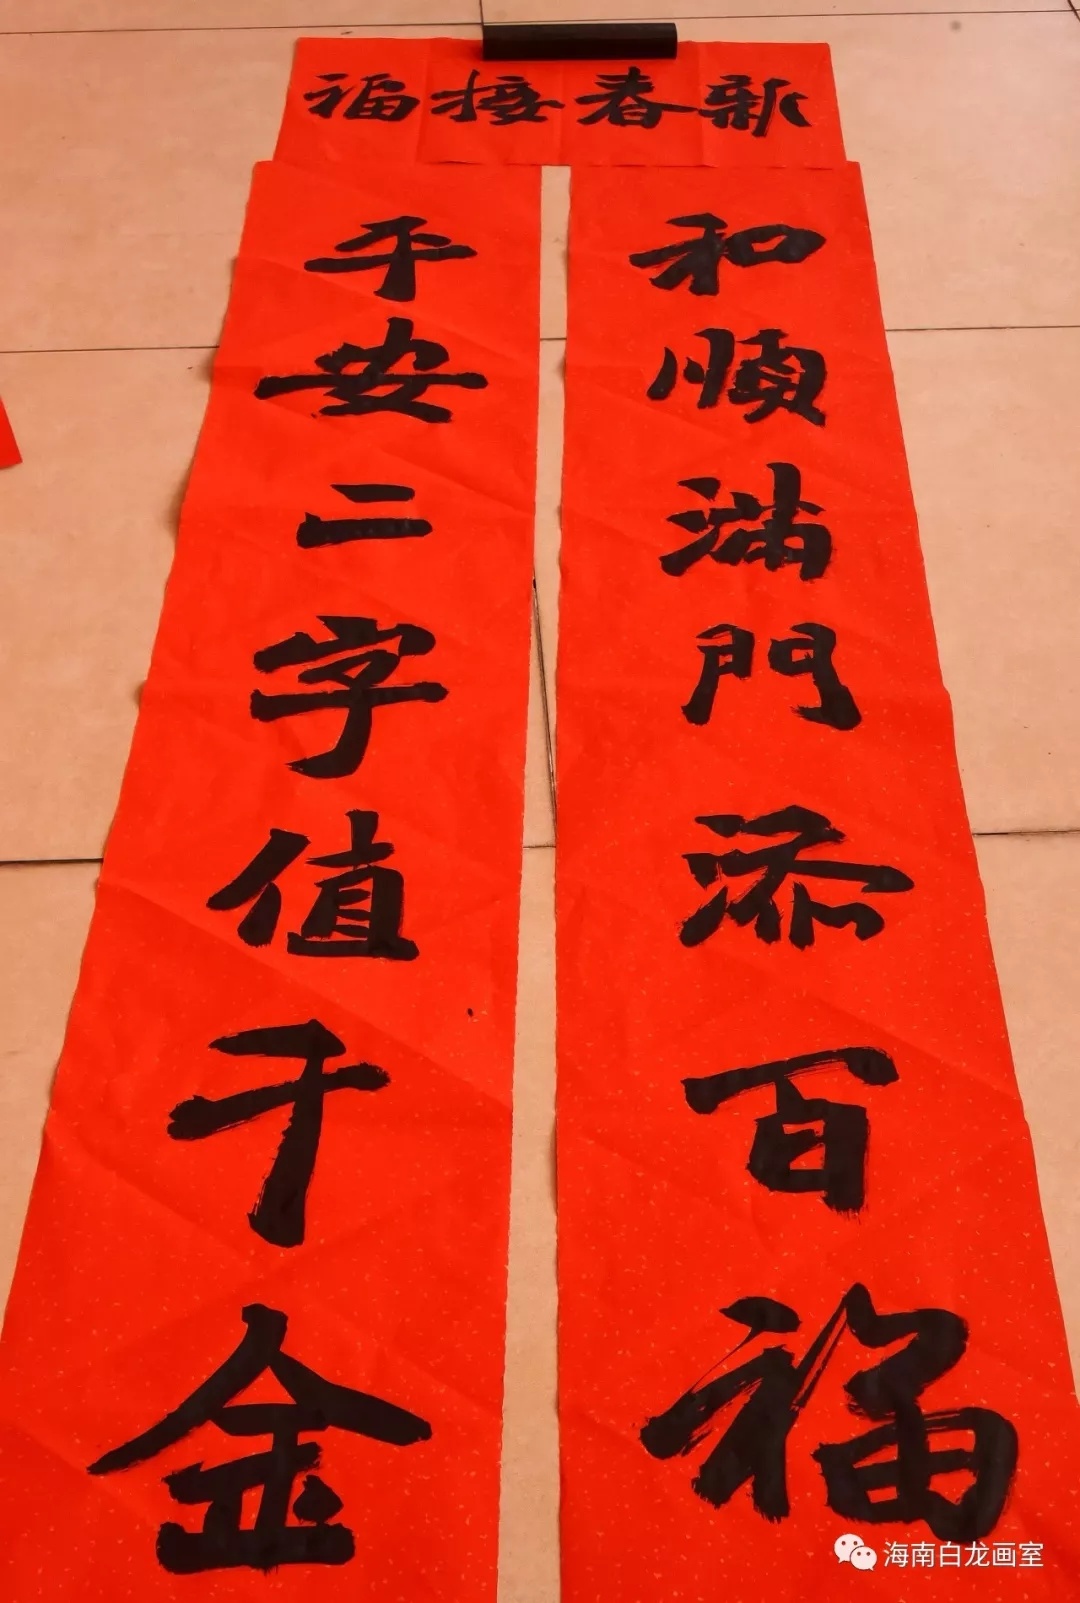 新春接福
和順滿門添百福
平安二字值千金
海南白龙画室